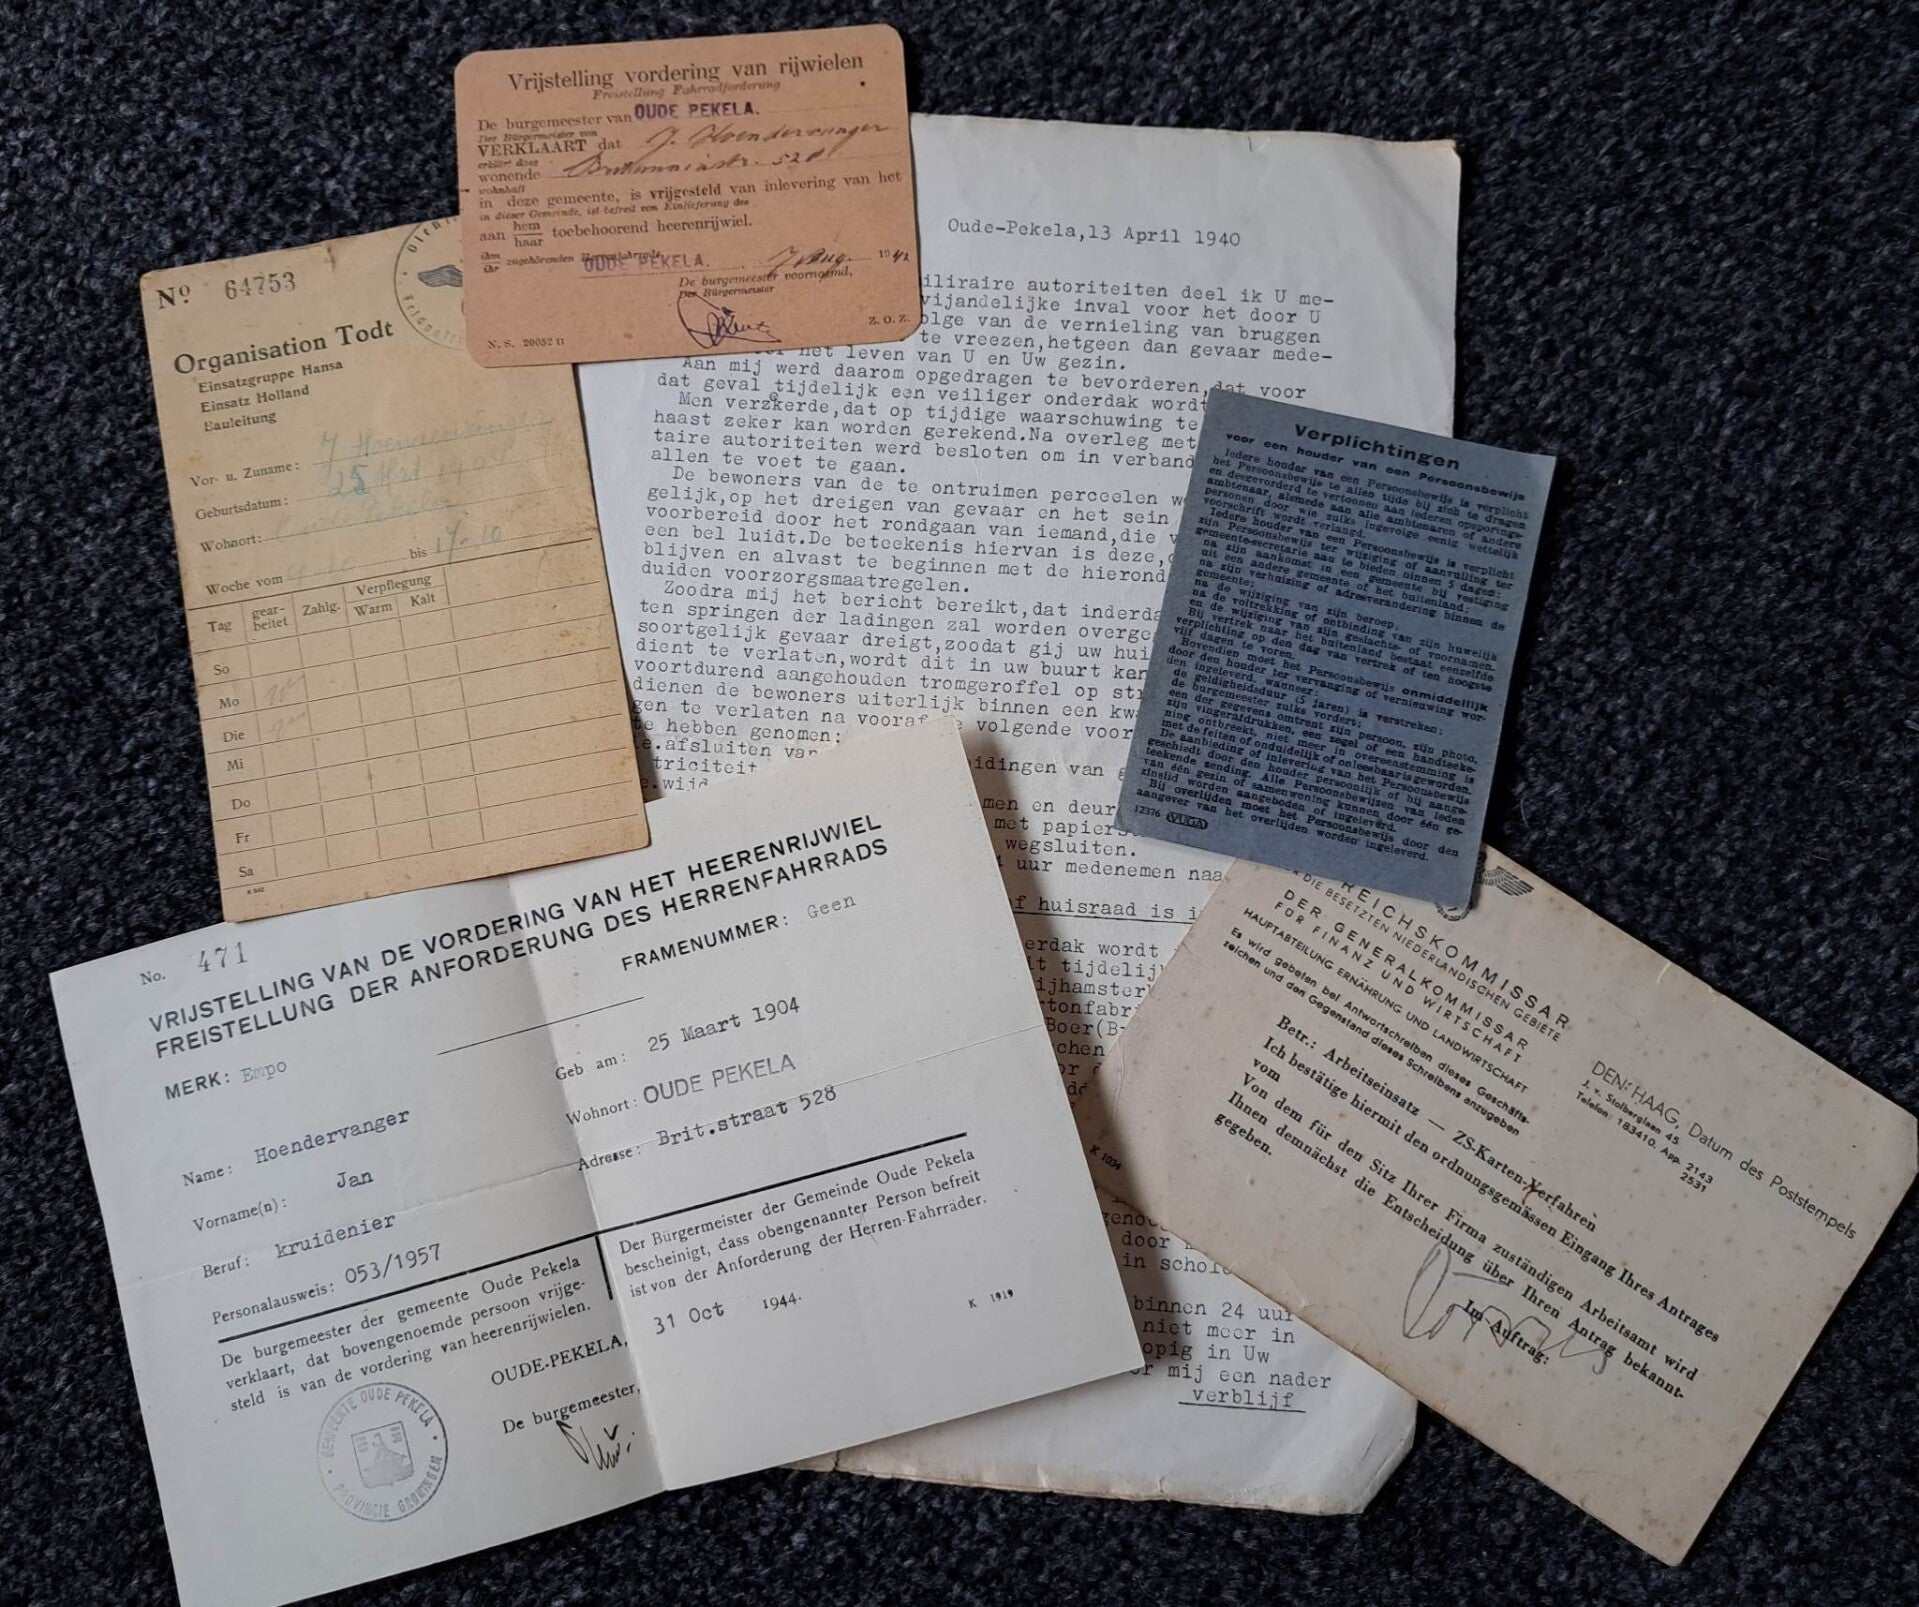 Vrijstelling vordering van rijwielen
Freistellung Fahrradforderung
De burgemeester van OUDE PEKELA.
Der Bürgermeister von
VERKLAART dat J. Hoendervanger
erklärt dass
wonende 528
wohnhaft
in deze gemeente, is vrijgesteld van inlevering van het
in dieser Gemeinde, ist befreit von Einlieferung des
aan hem/haar toebehoorend heerenrijwiel.
ihm/ihr zugehörenden Herrenfahrrads
OUDE PEKELA. 7 Aug. 1942
De burgemeester voornoemd,
Der Bürgermeister
N. S. 20052 II
Z. O. Z.
No 64753
Organisation Todt
Einsatzgruppe Hansa
Einsatz Holland
Bauleitung
Vor- u. Zuname: J Hoendervanger
Geburtsdatum: 25
Wohnort: Oude Pekela
Woche vom bis
Tag gear-beitet Zahlg. Verpflegung
Warm Kalt
So
Mo
Die
Mi
Do
Fr
Sa
K 542
Oude-Pekela,13 April 1940
iliraire autoriteiten deel ik U me-
vijandelijke inval voor het door U
olge van de vernieling van bruggen
te vreezen,hetgeen dan gevaar mede-
het leven van U en Uw gezin.
Aan mij werd daarom opgedragen te bevorderen,dat voor
dat geval tijdelijk een veiliger onderdak wordt
Men verzekerde,dat op tijdige waarschuwing te
haast zeker kan worden gerekend.Na overleg met
taire autoriteiten werd besloten om in verband
allen te voet te gaan.
De bewoners van de te ontruimen perceelen w
gelijk,op het dreigen van gevaar en het sein
voorbereid door het rondgaan van iemand,die
een bel luidt.De beteekenis hiervan is deze,
blijven en alvast te beginnen met de hierond
duiden voorzorgsmaatregelen.
Zoodra mij het bericht bereikt,dat inderda
ten springen der ladingen zal worden overge
soortgelijk gevaar dreigt,zoodat gij uw hui
dient te verlaten,wordt dit in uw buurt ken
voortdurend aangehouden tromgeroffel op str
dienen de bewoners uiterlijk binnen een kwa
gen te verlaten na vooraf de volgende voor
te hebben genomen:
e.afsluiten van idingen van g
triciteit
e.wijd
men en deur
met papier
wegsluiten.
uur medenemen naa
f huisraad is i
erdak wordt
it tijdelij
ijhamster
tonfabri
Boer(B
chen
or d
genoo
door
in schol
binnen 24 uur
niet meer in
opig in Uw
r mij een nader
verblijf
K 1034
Verplichtingen
voor een houder van een Persoonsbewijs
Iedere houder van een Persoonsbewijs is verplicht
het Persoonsbewijs te allen tijde bij zich te dragen
en desgevorderd te vertoonen aan iederen opsporings-
ambtenaar, alsmede aan alle ambtenaren of andere
personen door wie zulks ingevolge eenig wettelijk
voorschrift wordt verlangd.
Iedere houder van een Persoonsbewijs is verplicht
zijn Persoonsbewijs ter wijziging of aanvulling ter
gemeente-secretarie aan te bieden binnen 5 dagen:
na zijn aankomst in een gemeente bij vestiging
uit een andere gemeente of het buitenland;
na zijn verhuizing of adresverandering binnen de
gemeente;
na de wijziging van zijn beroep;
na de voltrekking of ontbinding van zijn huwelijk
en de wijziging van zijn geslachts- of voornamen.
Bij vertrek naar het buitenland bestaat eenzelfde
verplichting op den dag van vertrek of ten hoogste
vijf dagen te voren.
Bovendien moet het Persoonsbewijs onmiddellijk
door den houder ter vervanging of vernieuwing wor-
den ingeleverd, wanneer:
de geldigheidsduur (5 jaren) is verstreken;
de burgemeester zulks vordert;
een der gegevens omtrent zijn persoon, zijn photo,
zijn vingerafdrukken, een zegel of een handteeke-
ning ontbreekt, niet meer in overeenstemming is
met de feiten of onduidelijk of onleesbaar is geworden.
De aanbieding of inlevering van het Persoonsbewijs
geschiedt door den houder persoonlijk of bij aange-
teekende zending. Alle Persoonsbewijzen van leden
van één gezin of samenwoning kunnen door één ge-
zinslid worden aangeboden of ingeleverd.
Bij overlijden moet het Persoonsbewijs door den
aangever van het overlijden worden ingeleverd.
12376 VUGA
No. 471
VRIJSTELLING VAN DE VORDERING VAN HET HEERENRIJWIEL
FREISTELLUNG DER ANFORDERUNG DES HERRENFAHRRADS
MERK: Empo
FRAMENUMMER: Geen
Name: Hoendervanger
Vorname(n): Jan
Beruf: kruidenier
Personalausweis: 053/1957
Geb am: 25 Maart 1904
Wohnort: OUDE PEKELA
Adresse: Brit.straat 528
De burgemeester der gemeente Oude Pekela
verklaart, dat bovengenoemde persoon vrijge-
steld is van de vordering van heerenrijwielen.
Der Bürgermeister der Gemeinde Oude Pekela
bescheinigt, dass obengenannter Person befreit
ist von der Anforderung der Herren-Fahrräder.
OUDE-PEKELA, 31 Oct 1944.
De burgemeester,
K 1919
GEMEENTE OUDE PEKELA
PROVINCIE GRONINGEN
REICHSKOMMISSAR
DIE BESETZTEN NIEDERLÄNDISCHEN GEBIETE
DER GENERALKOMMISSAR
FÜR FINANZ UND WIRTSCHAFT
HAUPTABTEILUNG ERNÄHRUNG UND LANDWIRTSCHAFT
Es wird gebeten bei Antwortschreiben dieses Geschäfts-
zeichen und den Gegenstand dieses Schreibens anzugeben
DEN HAAG, Datum des Poststempels
J. v. Stolberglaan 45
Telefon: 183410, App. 2143
2531
Betr.: Arbeitseinsatz — ZS-Karten-Verfahren
Ich bestätige hiermit den ordnungsgemässen Eingang Ihres Antrages
vom
Von dem für den Sitz Ihrer Firma zuständigen Arbeitsamt wird
Ihnen demnächst die Entscheidung über Ihren Antrag bekannt-
gegeben.
Im Auftrag: